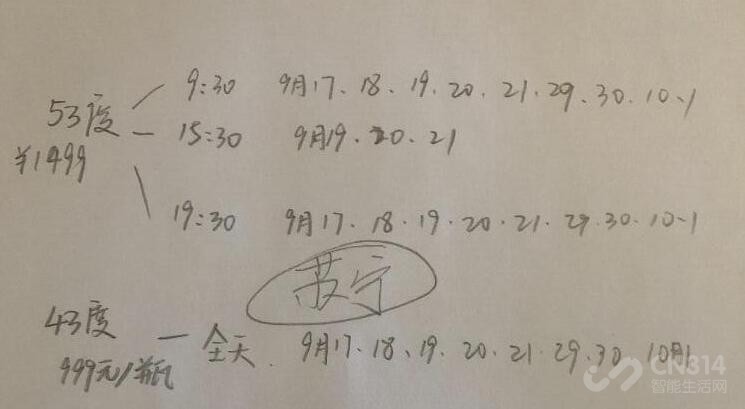 53度
¥1499
9:30 9月17、18、19、20、21、29、30、10、1
15:30 9月19、20、21
19:30 9月17、18、19、20、21、29、30、10、1
苏宁
43度
999元/瓶
全天 9月17、18、19、20、21、29、30、10月1
CN314
智能生活网